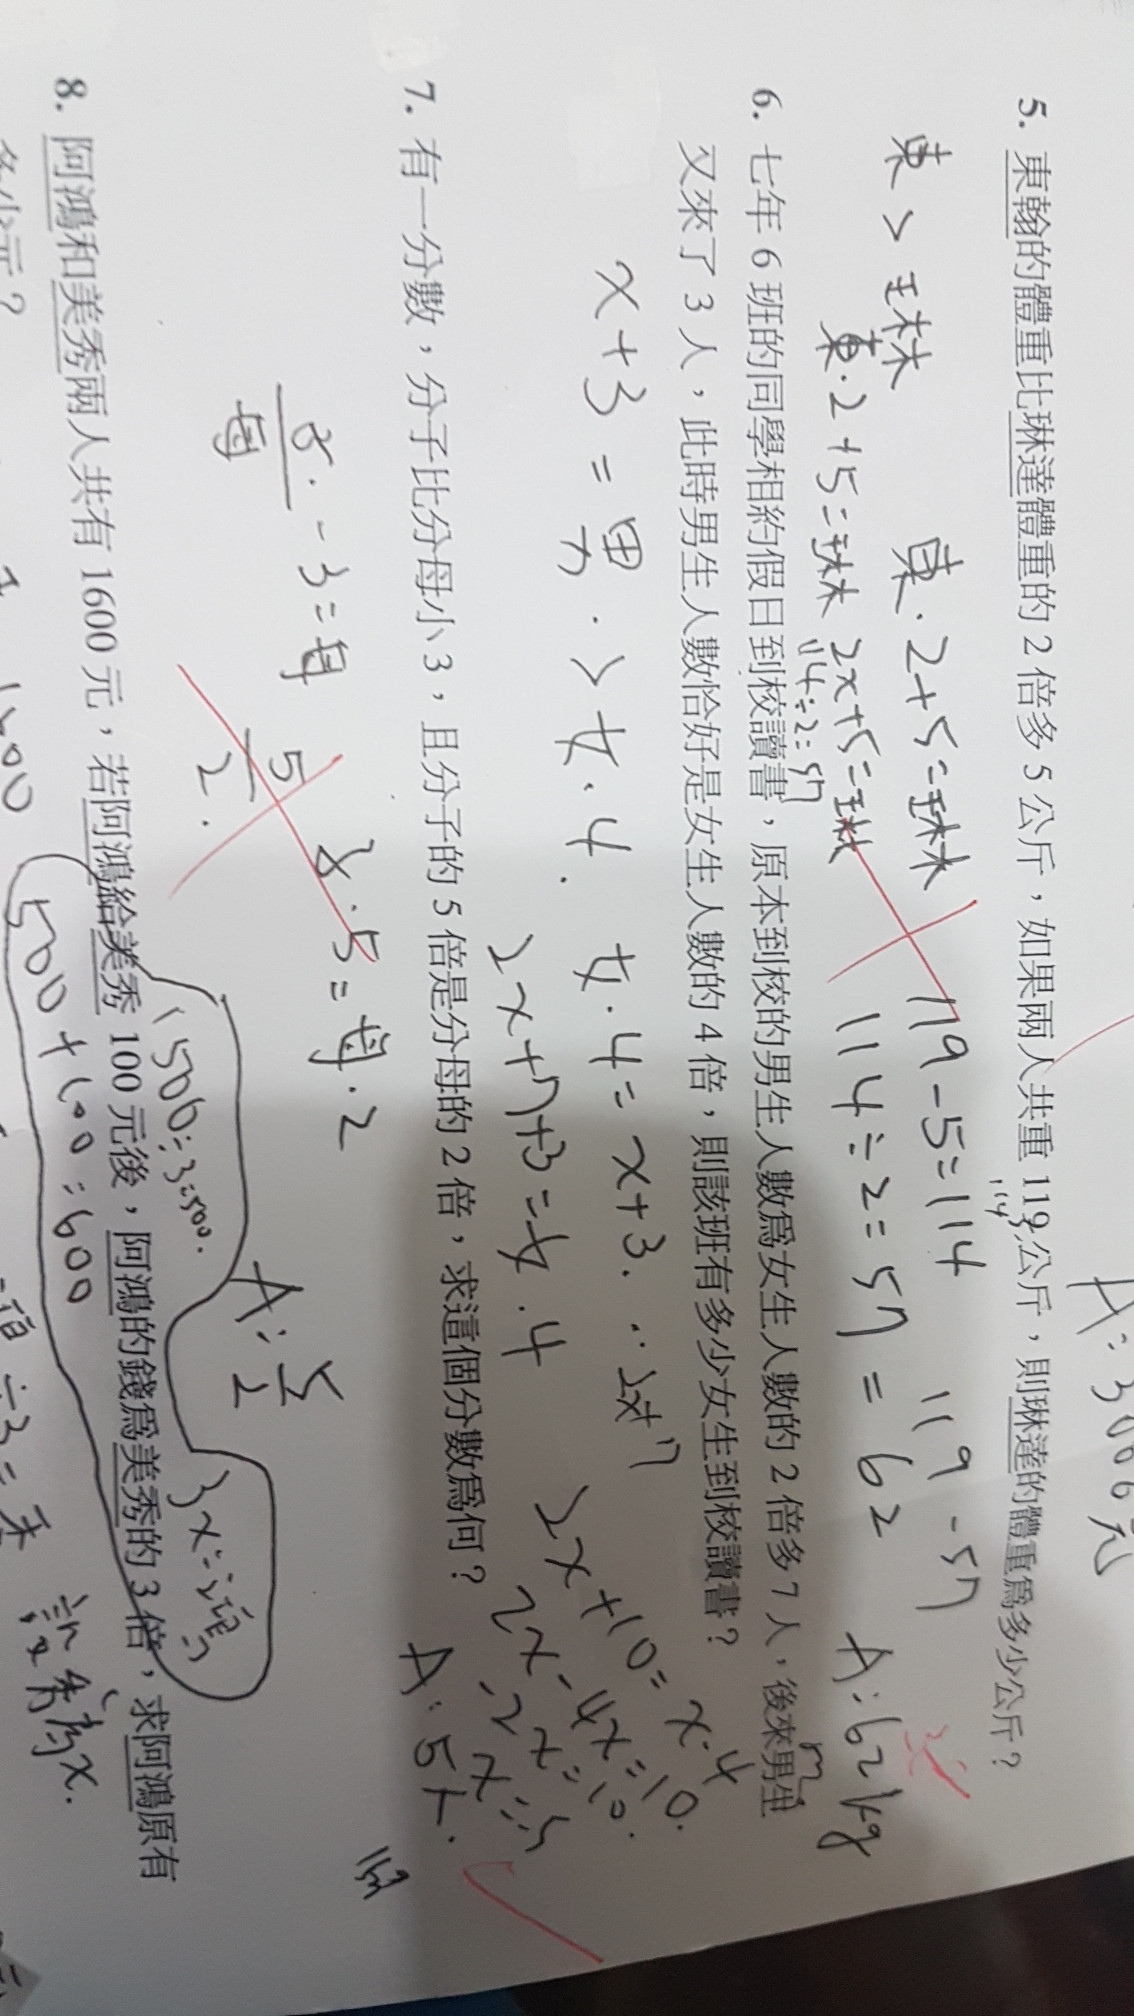 A：3000元
5. 東翰的體重比琳達體重的 2 倍多 5 公斤，如果兩人共重 119 公斤，則琳達的體重為多少公斤？
114
東 > 琳 東．2+5=琳 119-5=114 119-57
東．2+5=琳 2x+5=琳 114÷2=57=62 A：62kg
114÷2=57
6. 七年 6 班的同學相約假日到校讀書，原本到校的男生人數為女生人數的 2 倍多 7 人，後來男生
又來了 3 人，此時男生人數恰好是女生人數的 4 倍，則該班有多少女生到校讀書？
x+3=男．>女．4． 女．4=x+3．
2x+7+3=女．4 2x+10=x．4
2x-4x=10．
-2x=10．
x=5
A：5人．
7. 有一分數，分子比分母小 3，且分子的 5 倍是分母的 2 倍，求這個分數為何？
子．/母 -3=母 子．5=母．2
5/2． A：5/2
8. 阿鴻和美秀兩人共有 1600 元，若阿鴻給美秀 100 元後，阿鴻的錢為美秀的 3 倍，求阿鴻原有
多少元？
1500÷3=500． 3x=鴻
500+100=600 設秀為x．